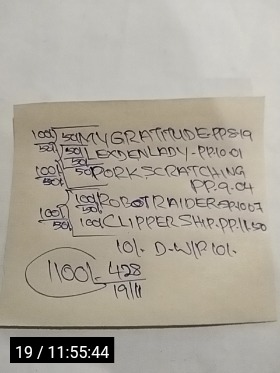 100/ 50/ MY GRATITUDE-PP.8-19
50/ 50/ LEXDEN LADY-PP.10.01
100/ 50/ 50 PORK SCRATCHING
PP.9.04
100/ 50/ ROBOT RAIDER
100/ 50/ 100 CLIPPER SHIP.PP.11.50
10/. D-W/P 10/.
1100/- 428
19/11
19 / 11:55:44